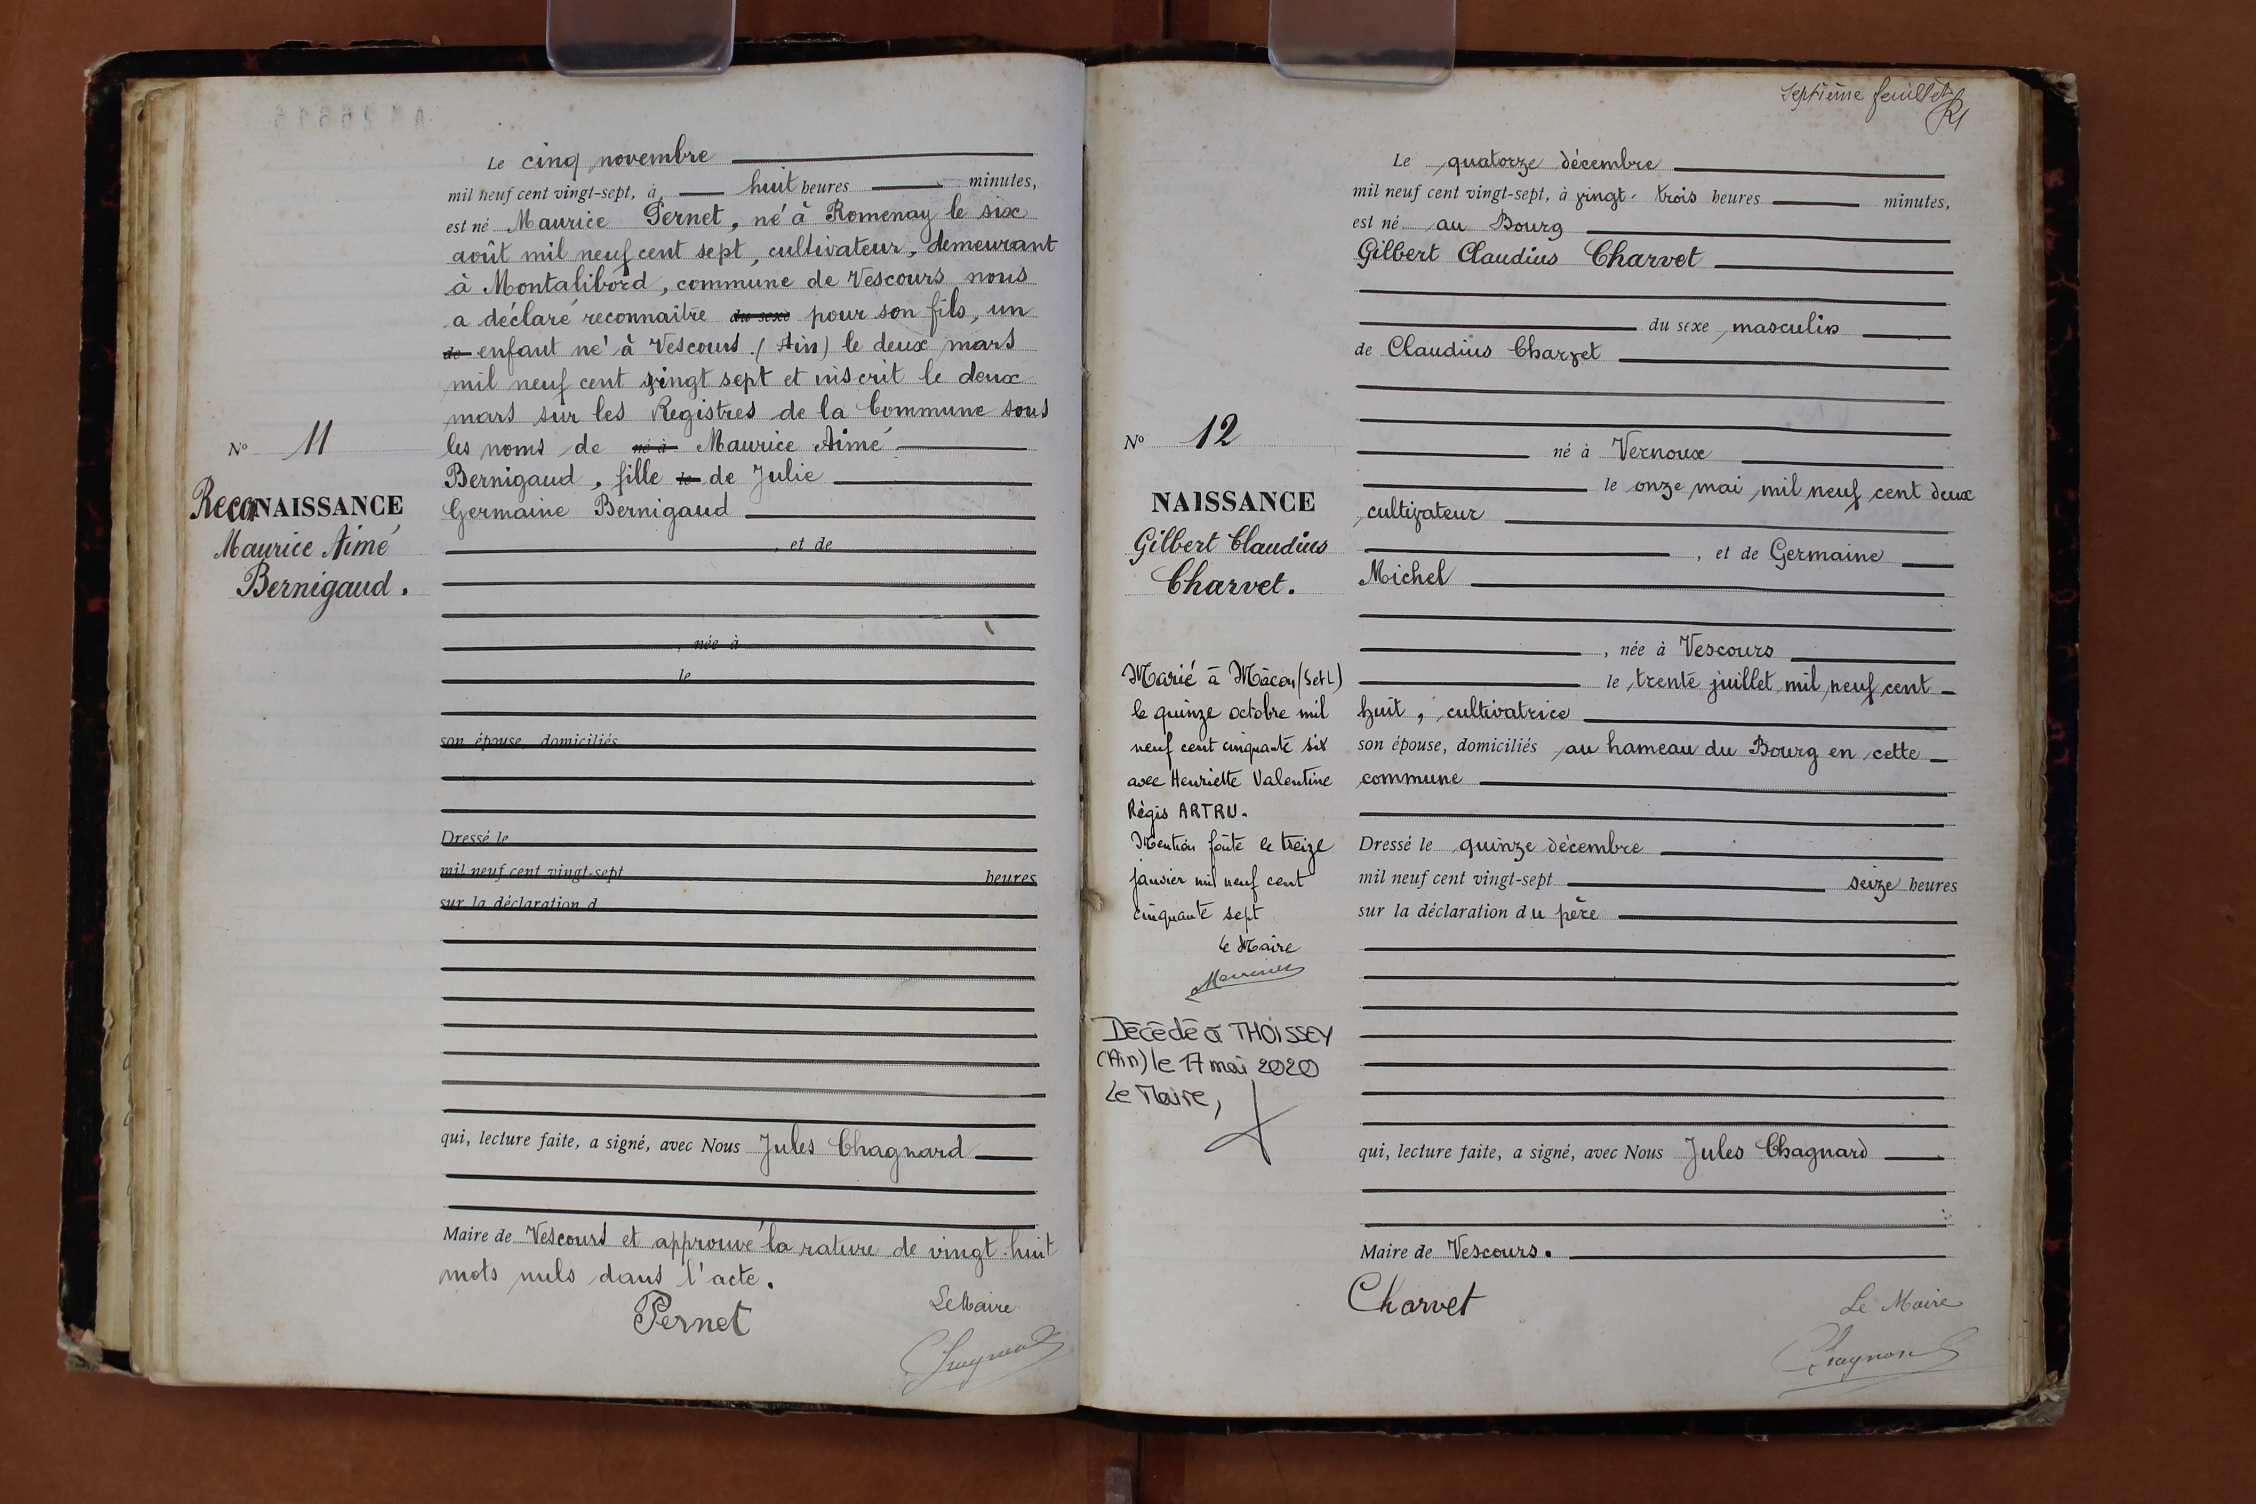 Le cinq novembre
mil neuf cent vingt-sept, à huit heures minutes,
est né Maurice Pernet, né à Romenay le six
août mil neuf cent sept, cultivateur, demeurant
à Montalibord, commune de Vescours nous
a déclaré reconnaitre du sexe pour son fils, un
de enfant né à Vescours (Ain) le deux mars
mil neuf cent vingt sept et inscrit le deux
mars sur les Registres de la Commune sous
les noms de né à Maurice Aimé
Bernigaud, fille le de Julie
Germaine Bernigaud
, et de
, née à
le
son épouse, domiciliés
Dressé le
mil neuf cent vingt-sept heures
sur la déclaration d
qui, lecture faite, a signé, avec Nous Jules Chagnard
Maire de Vescours et approuvé la rature de vingt-huit
mots nuls dans l'acte.
Pernet
Le Maire
Chagnard
N° 11
RecoNAISSANCE
Maurice Aimé
Bernigaud.
Septième feuillet
Le quatorze décembre
mil neuf cent vingt-sept, à vingt-trois heures minutes,
est né au Bourg
Gilbert Claudius Charvet
du sexe masculin
de Claudius Charvet
né à Vernoux
le onze mai mil neuf cent deux
cultivateur
, et de Germaine
Michel
, née à Vescours
le trente juillet mil neuf cent
huit, cultivatrice
son épouse, domiciliés au hameau du Bourg en cette
commune
Dressé le quinze décembre
mil neuf cent vingt-sept seize heures
sur la déclaration du père
qui, lecture faite, a signé, avec Nous Jules Chagnard
Maire de Vescours.
Charvet
Le Maire
Chagnard
N° 12
NAISSANCE
Gilbert Claudius
Charvet.
Marié à Mâcon (S et L)
le quinze octobre mil
neuf cent cinquante six
avec Henriette Valentine
Régis ARTRU.
Mention faite le treize
janvier mil neuf cent
cinquante sept
le Maire
Décédé à THOISSEY
(Ain) le 17 mai 2020
Le Maire,